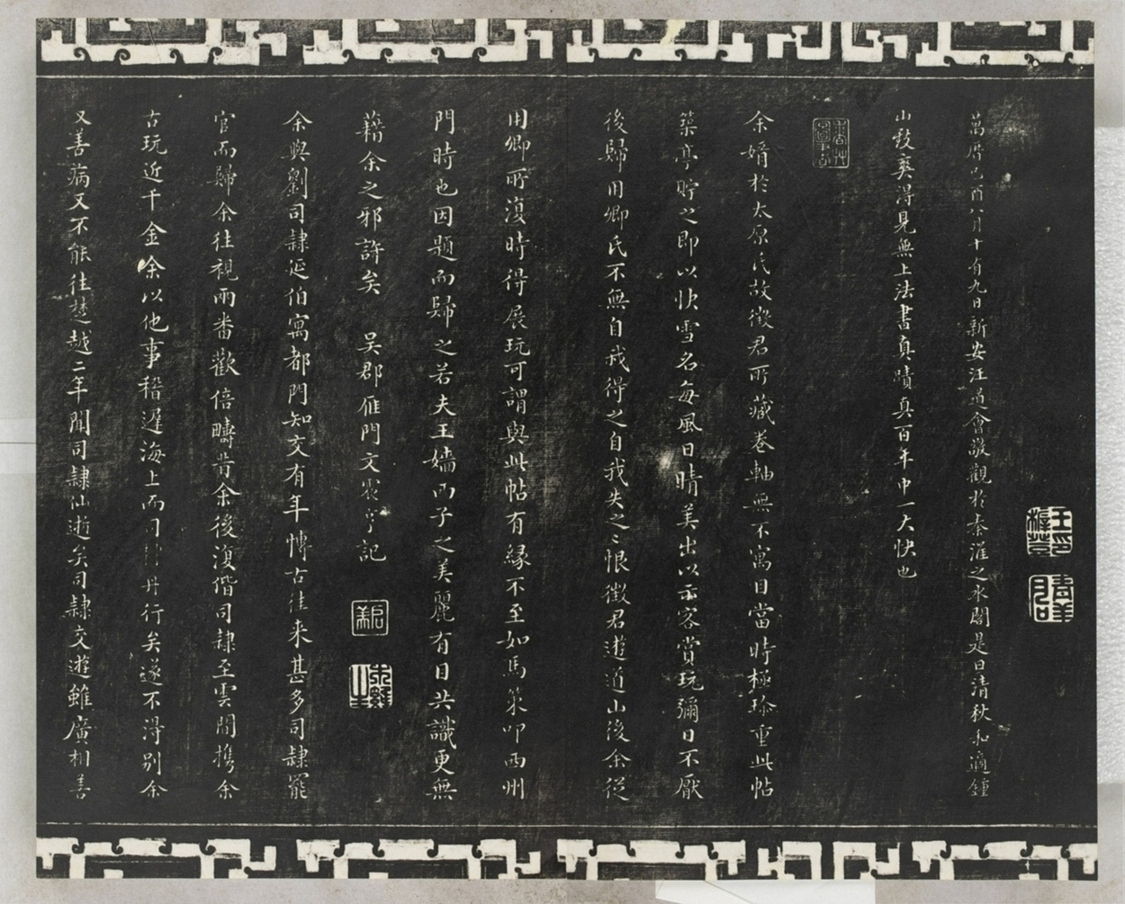 萬曆己酉八月十有九日新安汪道會敬觀於秦淮之水閣是日清秋和適鍾
山致爽得見無上法書真蹟真百年中一大快也
余婿於太原氏故徵君所藏卷軸無不寓目當時極珍重此帖
築亭貯之即以快雪名每風日晴美出以示客賞玩彌日不厭
後歸用卿氏不無自我得之自我失之之恨徵君逝道山後余從
用卿所復時得展玩可謂與此帖有緣不至如馬策叩西州
門時也因題而歸之若夫王嬙西子之美麗有目共識更無
藉余之邪許矣 吳郡雁門文震亨記
余與劉司隸延伯寓都門知交有年博古往來甚多司隸罷
官而歸余往視兩番歡倍疇昔余後復偕司隸至雲間攜余
古玩近千金余以他事稽遲海上而司隸舟行矣遂不得別余
又善病又不能往楚越二年聞司隸仙逝矣司隸交遊雖廣相善